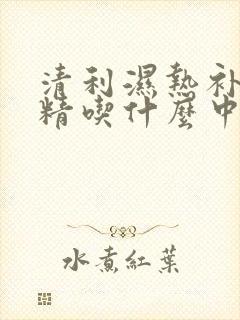 清利濕熱补
精喫什麼中
水煮紅葉